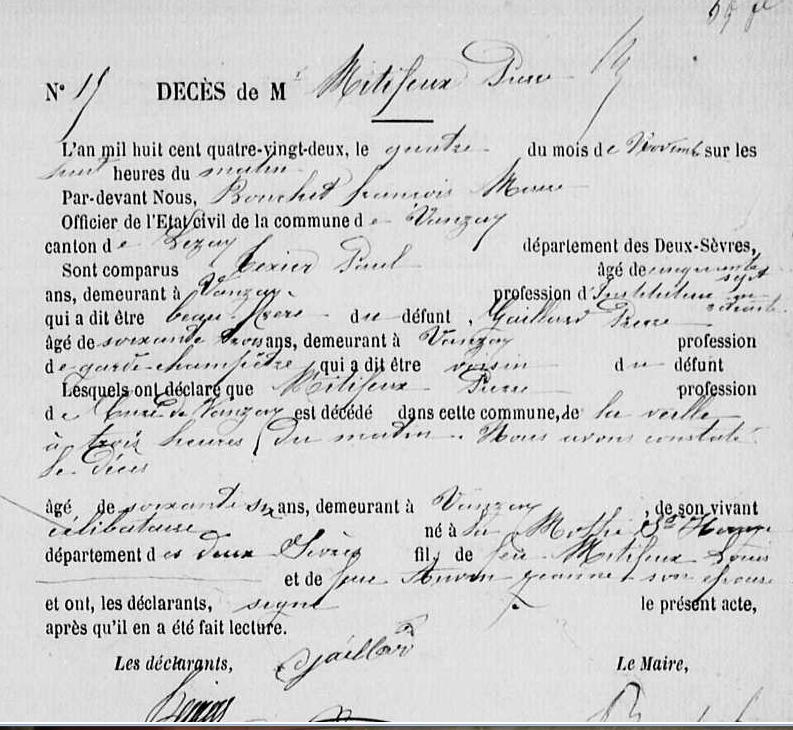 N° 15 DECÈS de Mr Mitifeux Pierre
L'an mil huit cent quatre-vingt-deux, le quatre du mois de Novemb sur les
huit heures du matin
Par-devant Nous, Bouchet François Maire
Officier de l'Etat civil de la commune de Vanzay
canton de Lezay département des Deux-Sèvres,
Sont comparus Texier Paul âgé de cinquante sept
ans, demeurant à Vanzay profession d'Instituteur en retraite
qui a dit être beau frère du défunt, Gaillard Pierre
âgé de soixante trois ans, demeurant à Vanzay profession
de garde-champêtre qui a dit être voisin du défunt
Lesquels ont déclaré que Mitifeux Pierre profession
de Curé de Vanzay est décédé dans cette commune, de la veille
à trois heures du matin. Nous avons constaté
le décès
âgé de soixante six ans, demeurant à Vanzay, de son vivant
célibataire né à La Mothe St Heraye
département des deux Sèvres fils de feu Mitifeux Louis
et de feue Jeanne son épouse
et ont, les déclarants, signé le présent acte,
après qu'il en a été fait lecture.
Les déclarants, Gaillard Le Maire,